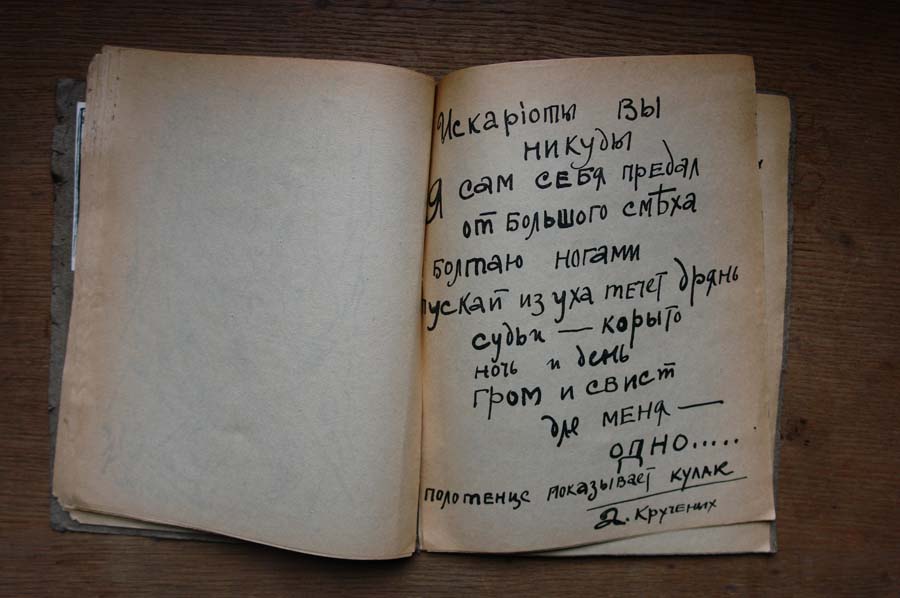 Искаріоты вы
никуды
Я сам себя предал
от большого смѣха
болтаю ногами
пускай из уха течет дрянь
судьи — корыто
ночь и день
гром и свист
для меня —
одно.....
полотенце показывает кулак
А. Кручених